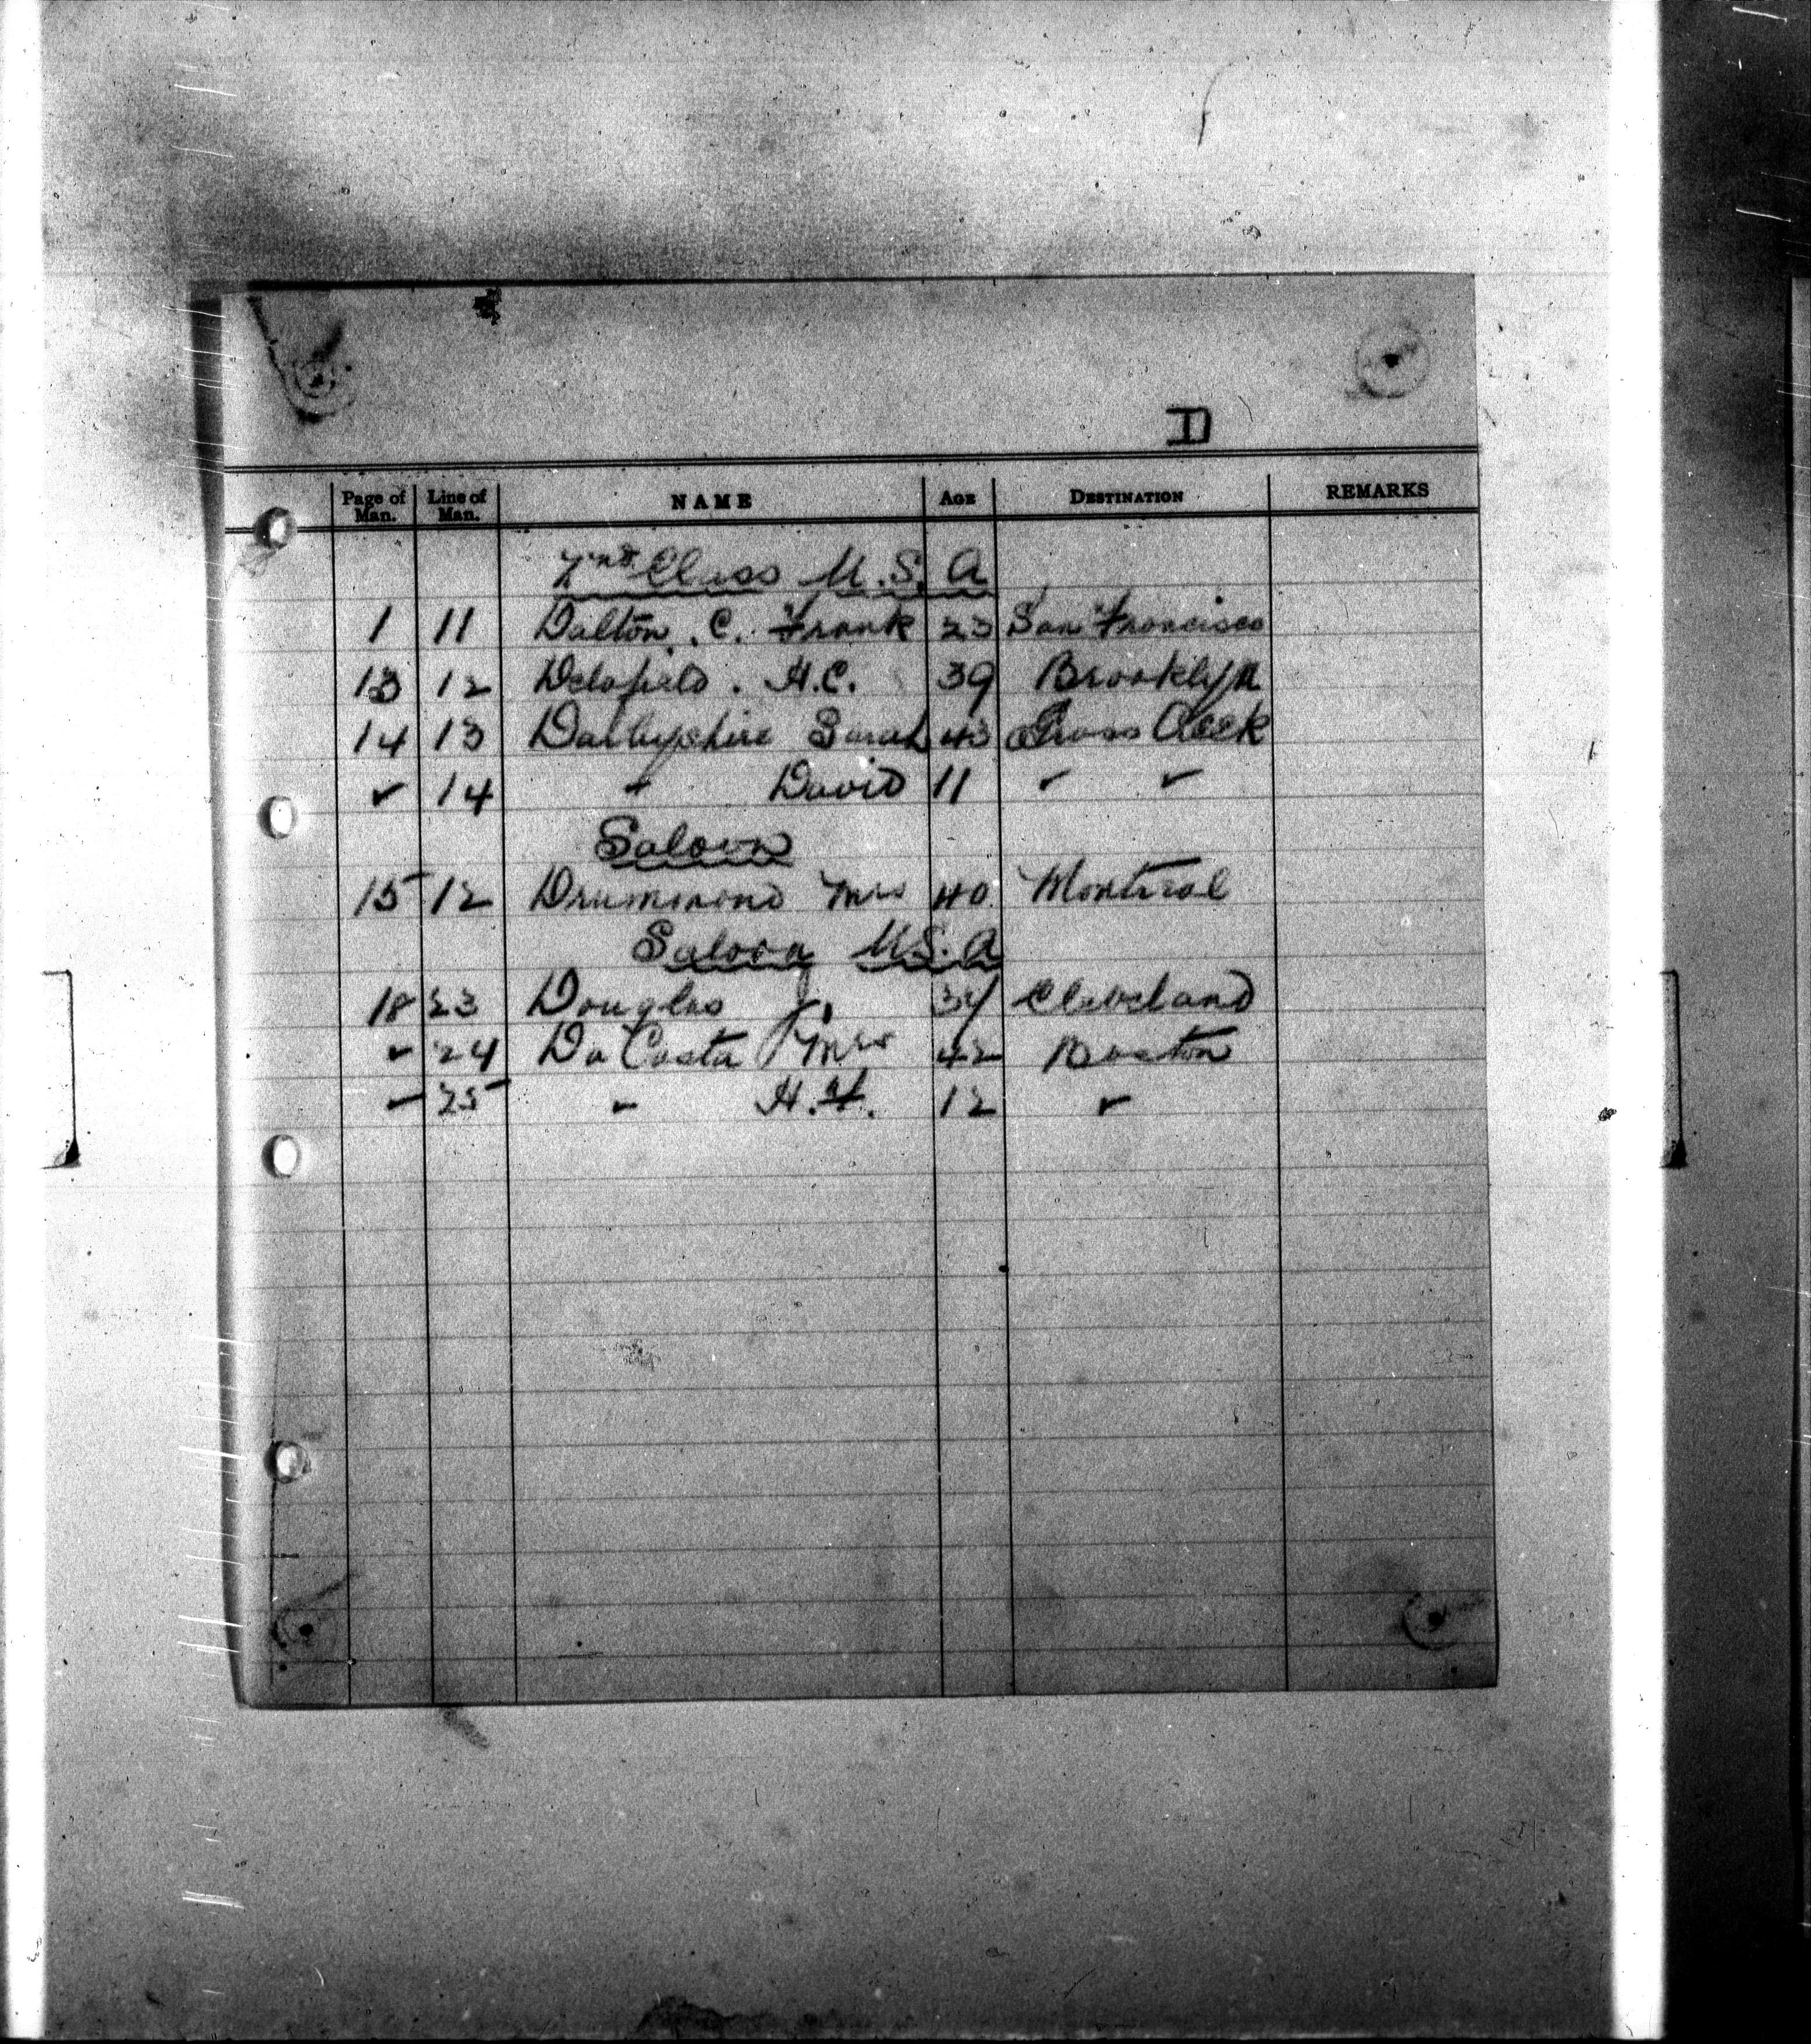 D
Page of Man. Line of Man. NAME AGE DESTINATION REMARKS
2nd Class U.S.A
1 11 Dalton. C. Frank 23 San Francisco
13 12 Delafield. H.C. 39 Brooklyn
14 13 Darbyshire Sarah 43 Creek
✓ 14 " David 11 " "
Saloon
15 12 Drummond Mrs 40 Montreal
Saloon U.S.A
18 23 Douglas J. Cleveland
" 24 Da Costa Mrs 42 Boston
" 25 " H.H. 12 "